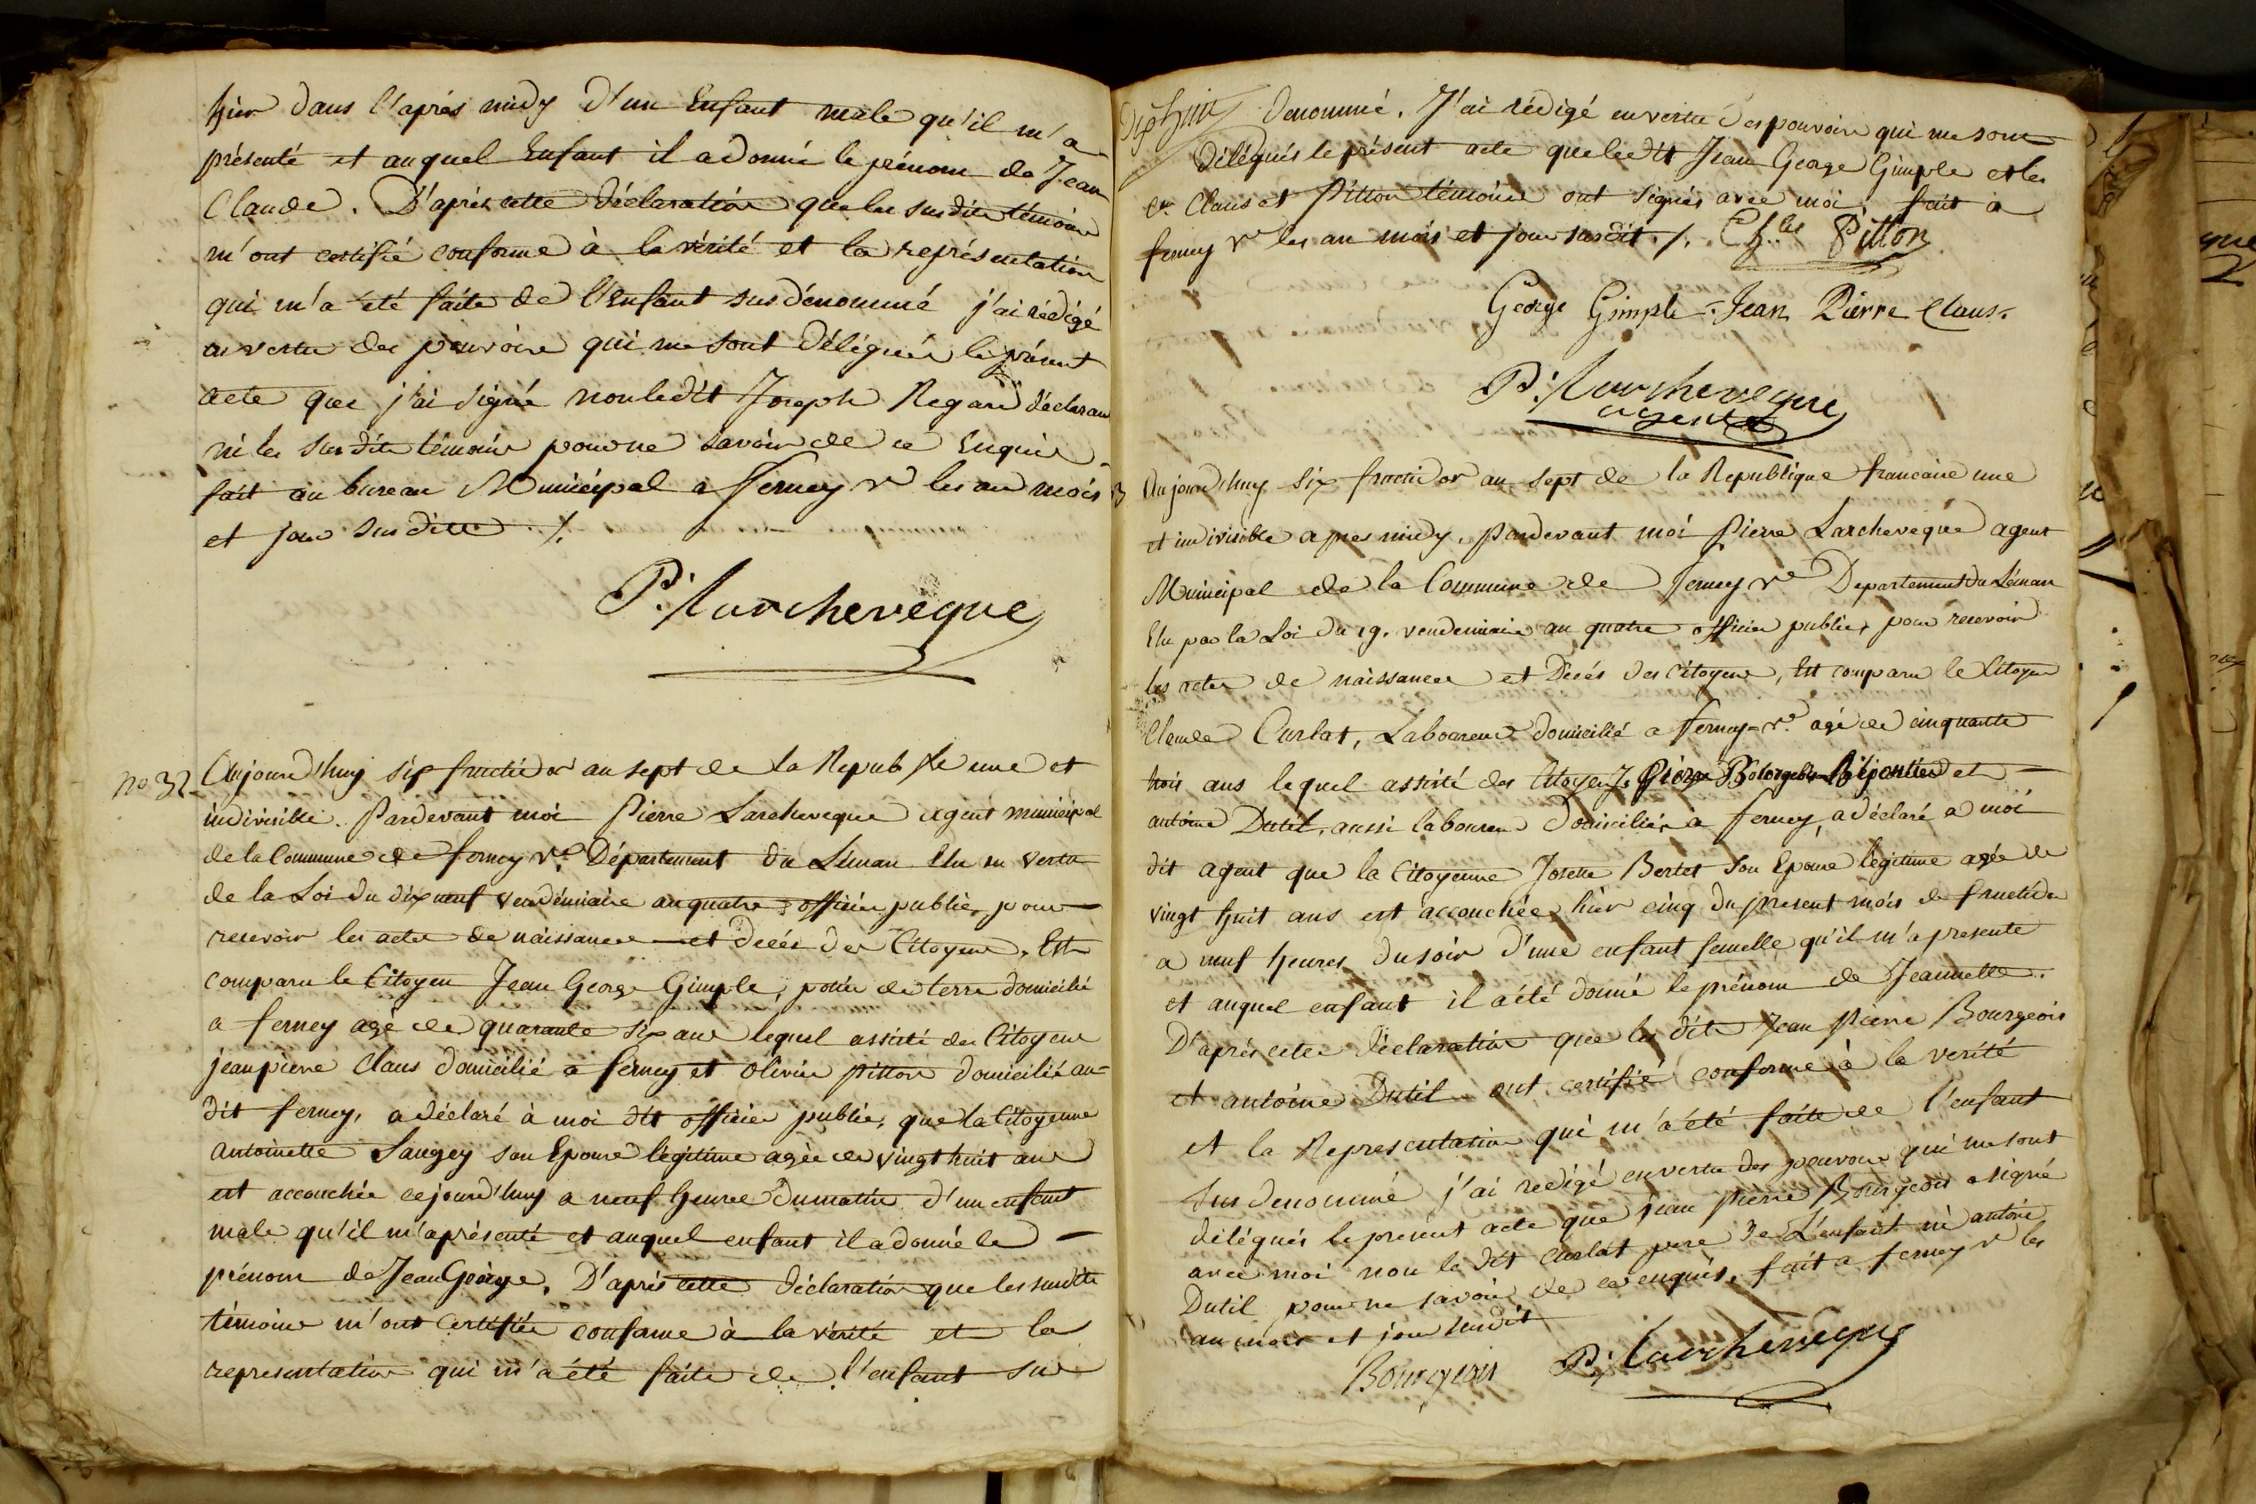 hier dans l'aprés midy d'un Enfant male qu'il m'a
présenté et auquel Enfant il a donné le prénom de Jean
Claude. D'aprés cette déclaration que les susdits témoins
m'ont certifié conforme à la vérité et la représentation
qui m'a été faite de l'Enfant sus dénommé j'ai rédigé
en vertu des pouvoirs qui me sont délégués le présent
acte que j'ai signé non ledit Joseph Regard déclarant
ni les susdits témoins pour ne savoir de ce Enquis
fait au bureau Municipal a Ferney Ve les an mois
et jour sus dits ./.
P. Larcheveque
no 32 Aujourd'huy six fructidor an sept de la Repub fse une et
indivisible. Pardevant moi Pierre Larcheveque agent municipal
de la Commune de ferney Ve. Département du Léman Elu en vertu
de la Loi du dix neuf vendémiaire an quatre officier public, pour
recevoir les actes de naissance et decés des Citoyens, Est
comparu le Citoyen Jean George Gimple, potier de terre domicilié
a ferney agé de quarante six ans lequel assisté des Citoyens
jean pierre Claus domicilié a ferney et Olivier pitton domicilié au
dit ferney, a déclaré à moi dit officier public, que la Citoyenne
antoinette Saugey son Epouse legitime agée de vingt huit ans
est accouchée cejourd'huy a neuf heures du matin d'un enfant
male qu'il m'a présenté et auquel enfant il a donné le
prénom de Jean George. D'aprés cette déclaration que les susdits
témoins m'ont certifiés conforme à la vérité et la
representation qui m'a été faite de l'enfant sus
dix huit dénommé. J'ai rédigé en vertu des pouvoirs qui me sont
délégués le présent acte que ledit Jean George Gimple et les
Cn Claus et Pitton témoins ont signés avec moi, fait à
ferney Ve les an mois et jour susdit ./. Ch.les Pitton
George Gimple - Jean Pierre Claus.
P. Larcheveque
agent
Aujourd'huy six fructidor an sept de la Republique francaise une
et indivisible apres midy, pardevant moi Pierre Larcheveque agent
Municipal de la Commune de Ferney Ve Departement du Léman
Elu par la Loi du 19. vendemiaire an quatre officier public, pour recevoir
les actes de naissances et Décés des Citoyens, Est comparu le Citoyen
Claude Curlat, Laboureur domicilié a Ferney-Ve. agé de cinquante
trois ans lequel assisté des Citoyens Je Pierre et
antoine Dutil, aussi laboureur domiciliés a ferney, a déclaré a moi
dit agent que la Citoyenne Josette Bertet son Epouse legitime agée de
vingt huit ans est accouchée hier cinq du present mois de fructidor
a neuf heures du soir d'une enfant femelle qu'il m'a presenté
et auquel enfant il a été donné le prénom de Jeannette.
D'aprés cette déclaration que les dits Jean pierre Bourgeois
et antoine Dutil ont certifié conforme à la verité
et la Representation qui m'a été faite de l'enfant
sus denommé j'ai redigé en vertu des pouvoirs qui me sont
délégués le present acte que jean pierre Bourgeois a signé
avec moi non le dit Curlat pere de L'enfant ni antoine
Dutil pour ne savoir de ce enquis, fait a ferney Ve les
an mois et jour susdit
Bourgeois P. Larcheveque